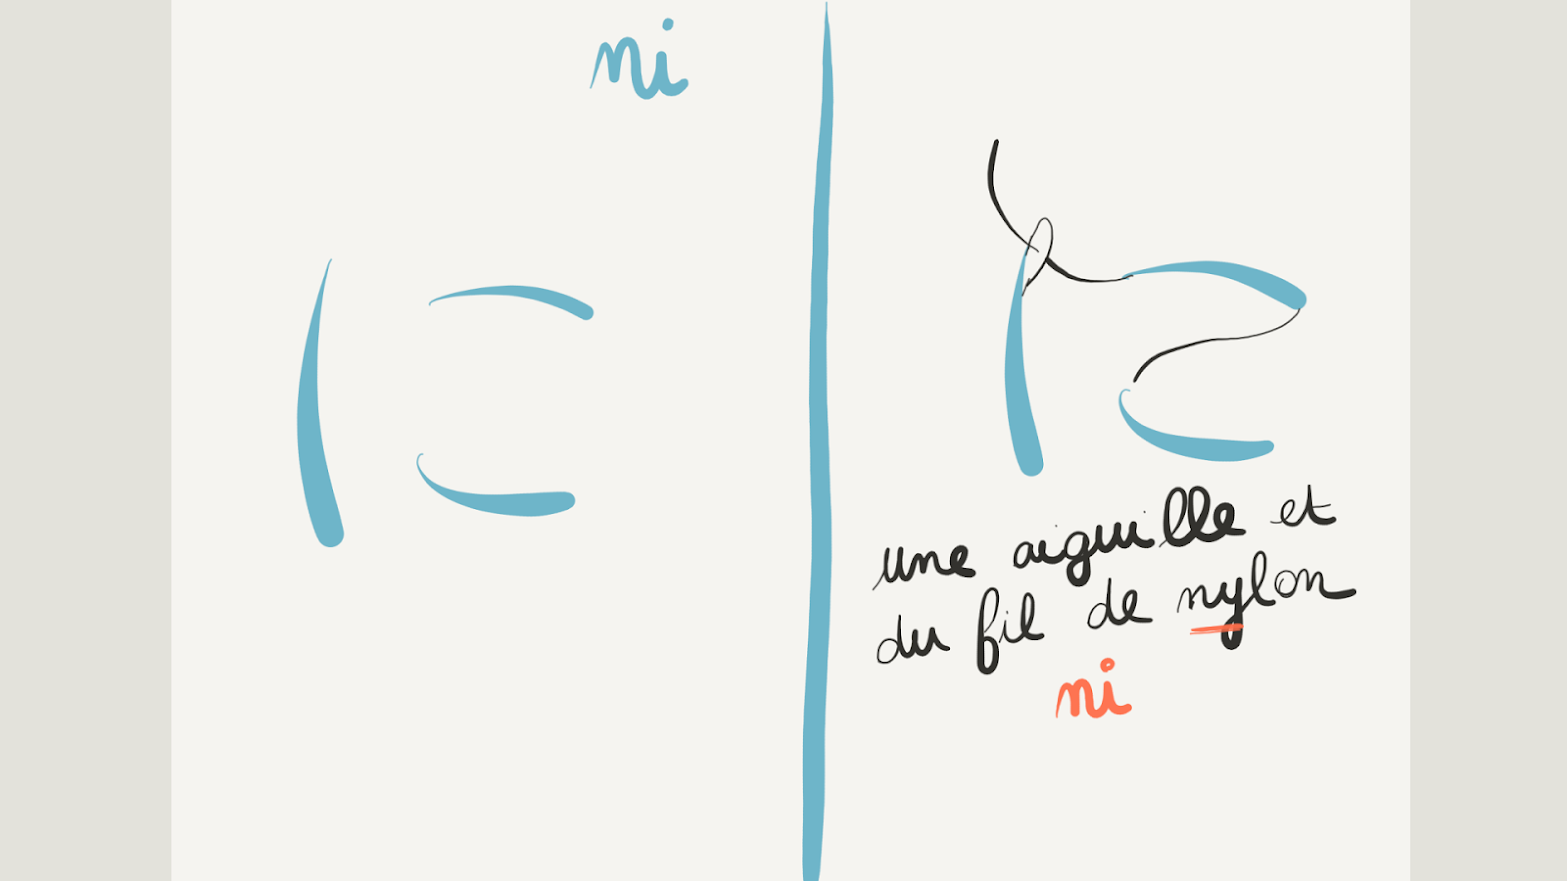 ni
に
une aiguille et
du fil de nylon
ni